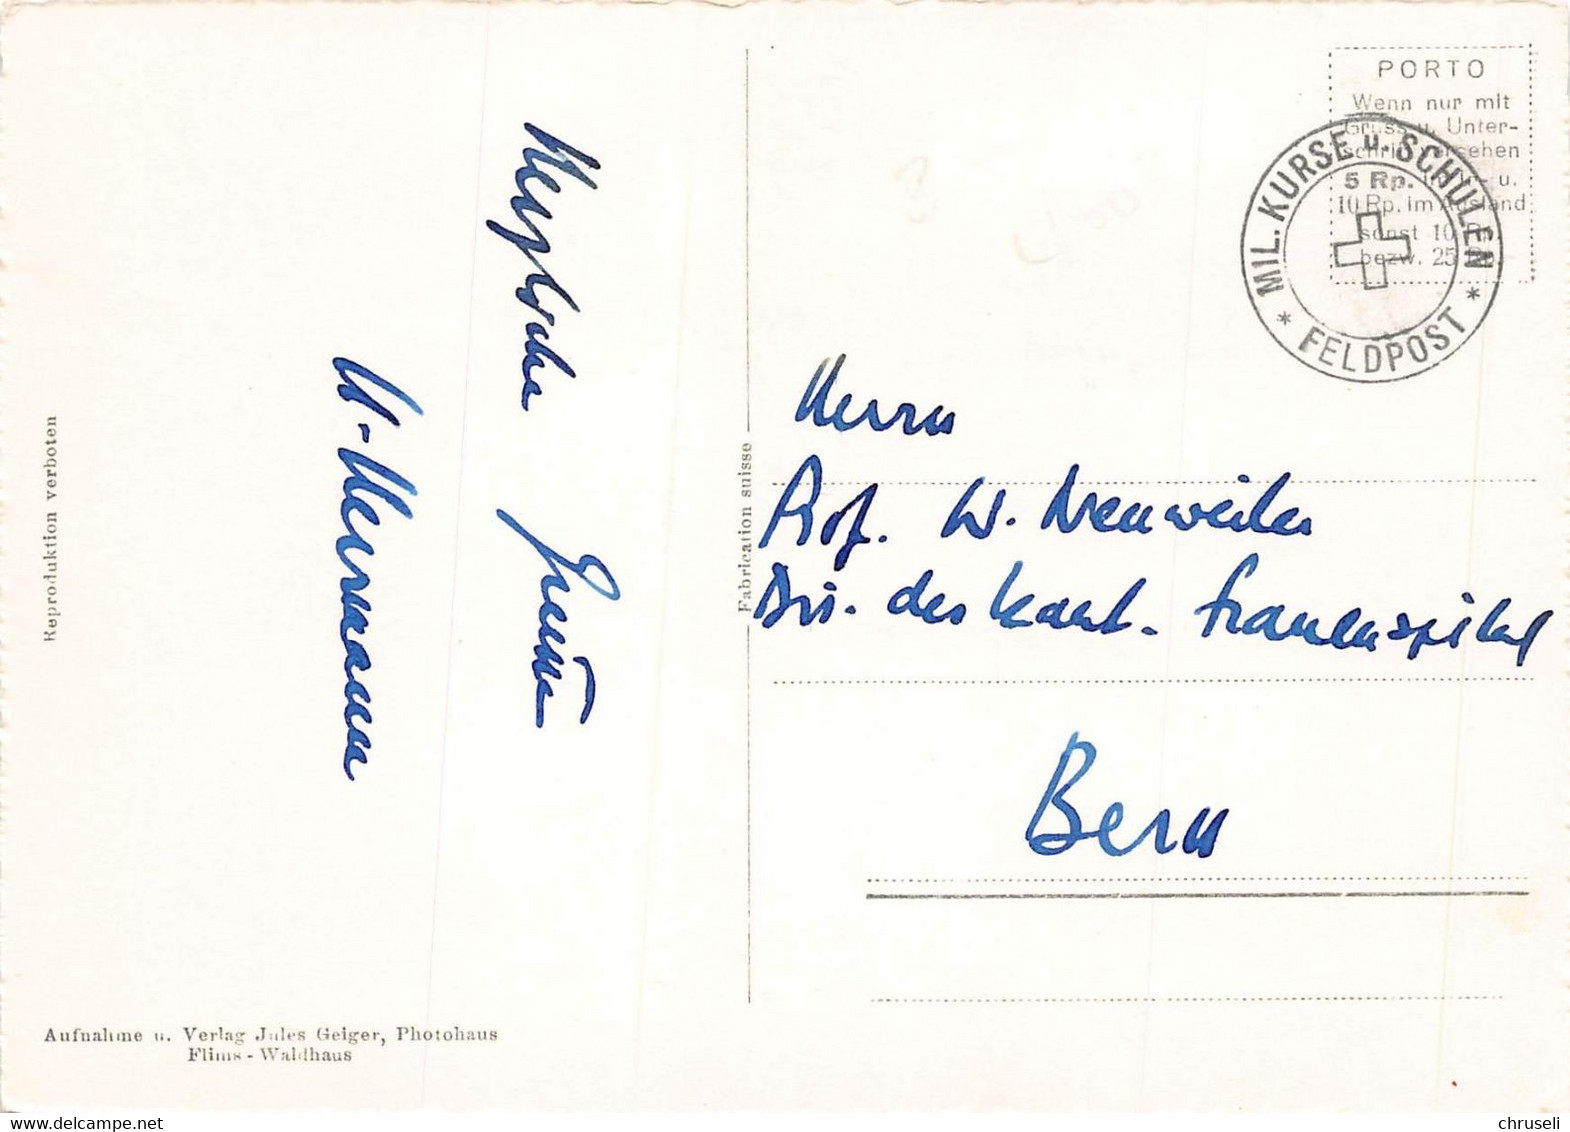 PORTO
Wenn nur mit
Gruss u. Unter-
schrift versehen
5 Rp. u.
10 Rp. im Ausland
sonst 10 Rp.
bezw. 25 Rp.
MIL. KURSE u. SCHULEN
* FELDPOST *
Herzliche Grüsse
Herrn
Prof. W. Neuweiler
Dir. des kant. Frauenspital
Bern
Reproduktion verboten
Fabrication suisse
Aufnahme u. Verlag Jules Geiger, Photohaus
Flims - Waldhaus
chruseli